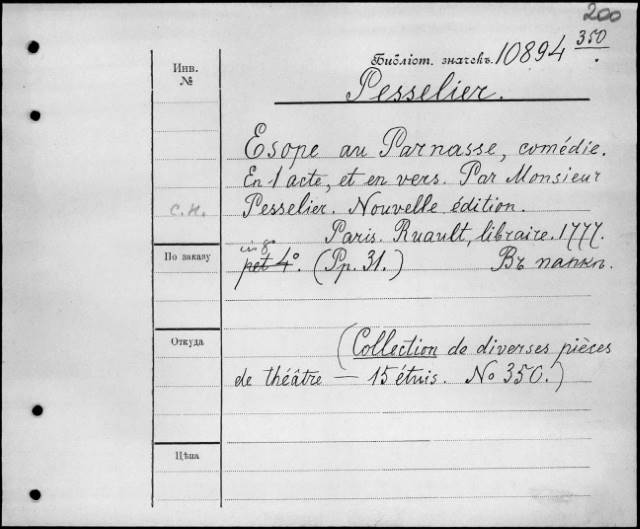 200
Библіот. значекъ. 10894 350
Инв.
№
Pesselier.
Esope au Parnasse, comédie.
En 1 acte, et en vers. Par Monsieur
с.н.
Pesselier. Nouvelle édition.
Paris. Ruault, libraire. 1777.
in 8°
По заказу
pet 4°. (Pp. 31.) Въ папкѣ.
Откуда
(Collection de diverses pièces
de théâtre — 15 étuis. No 350.)
Цѣна